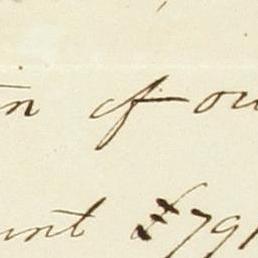 n of ou
unt £791